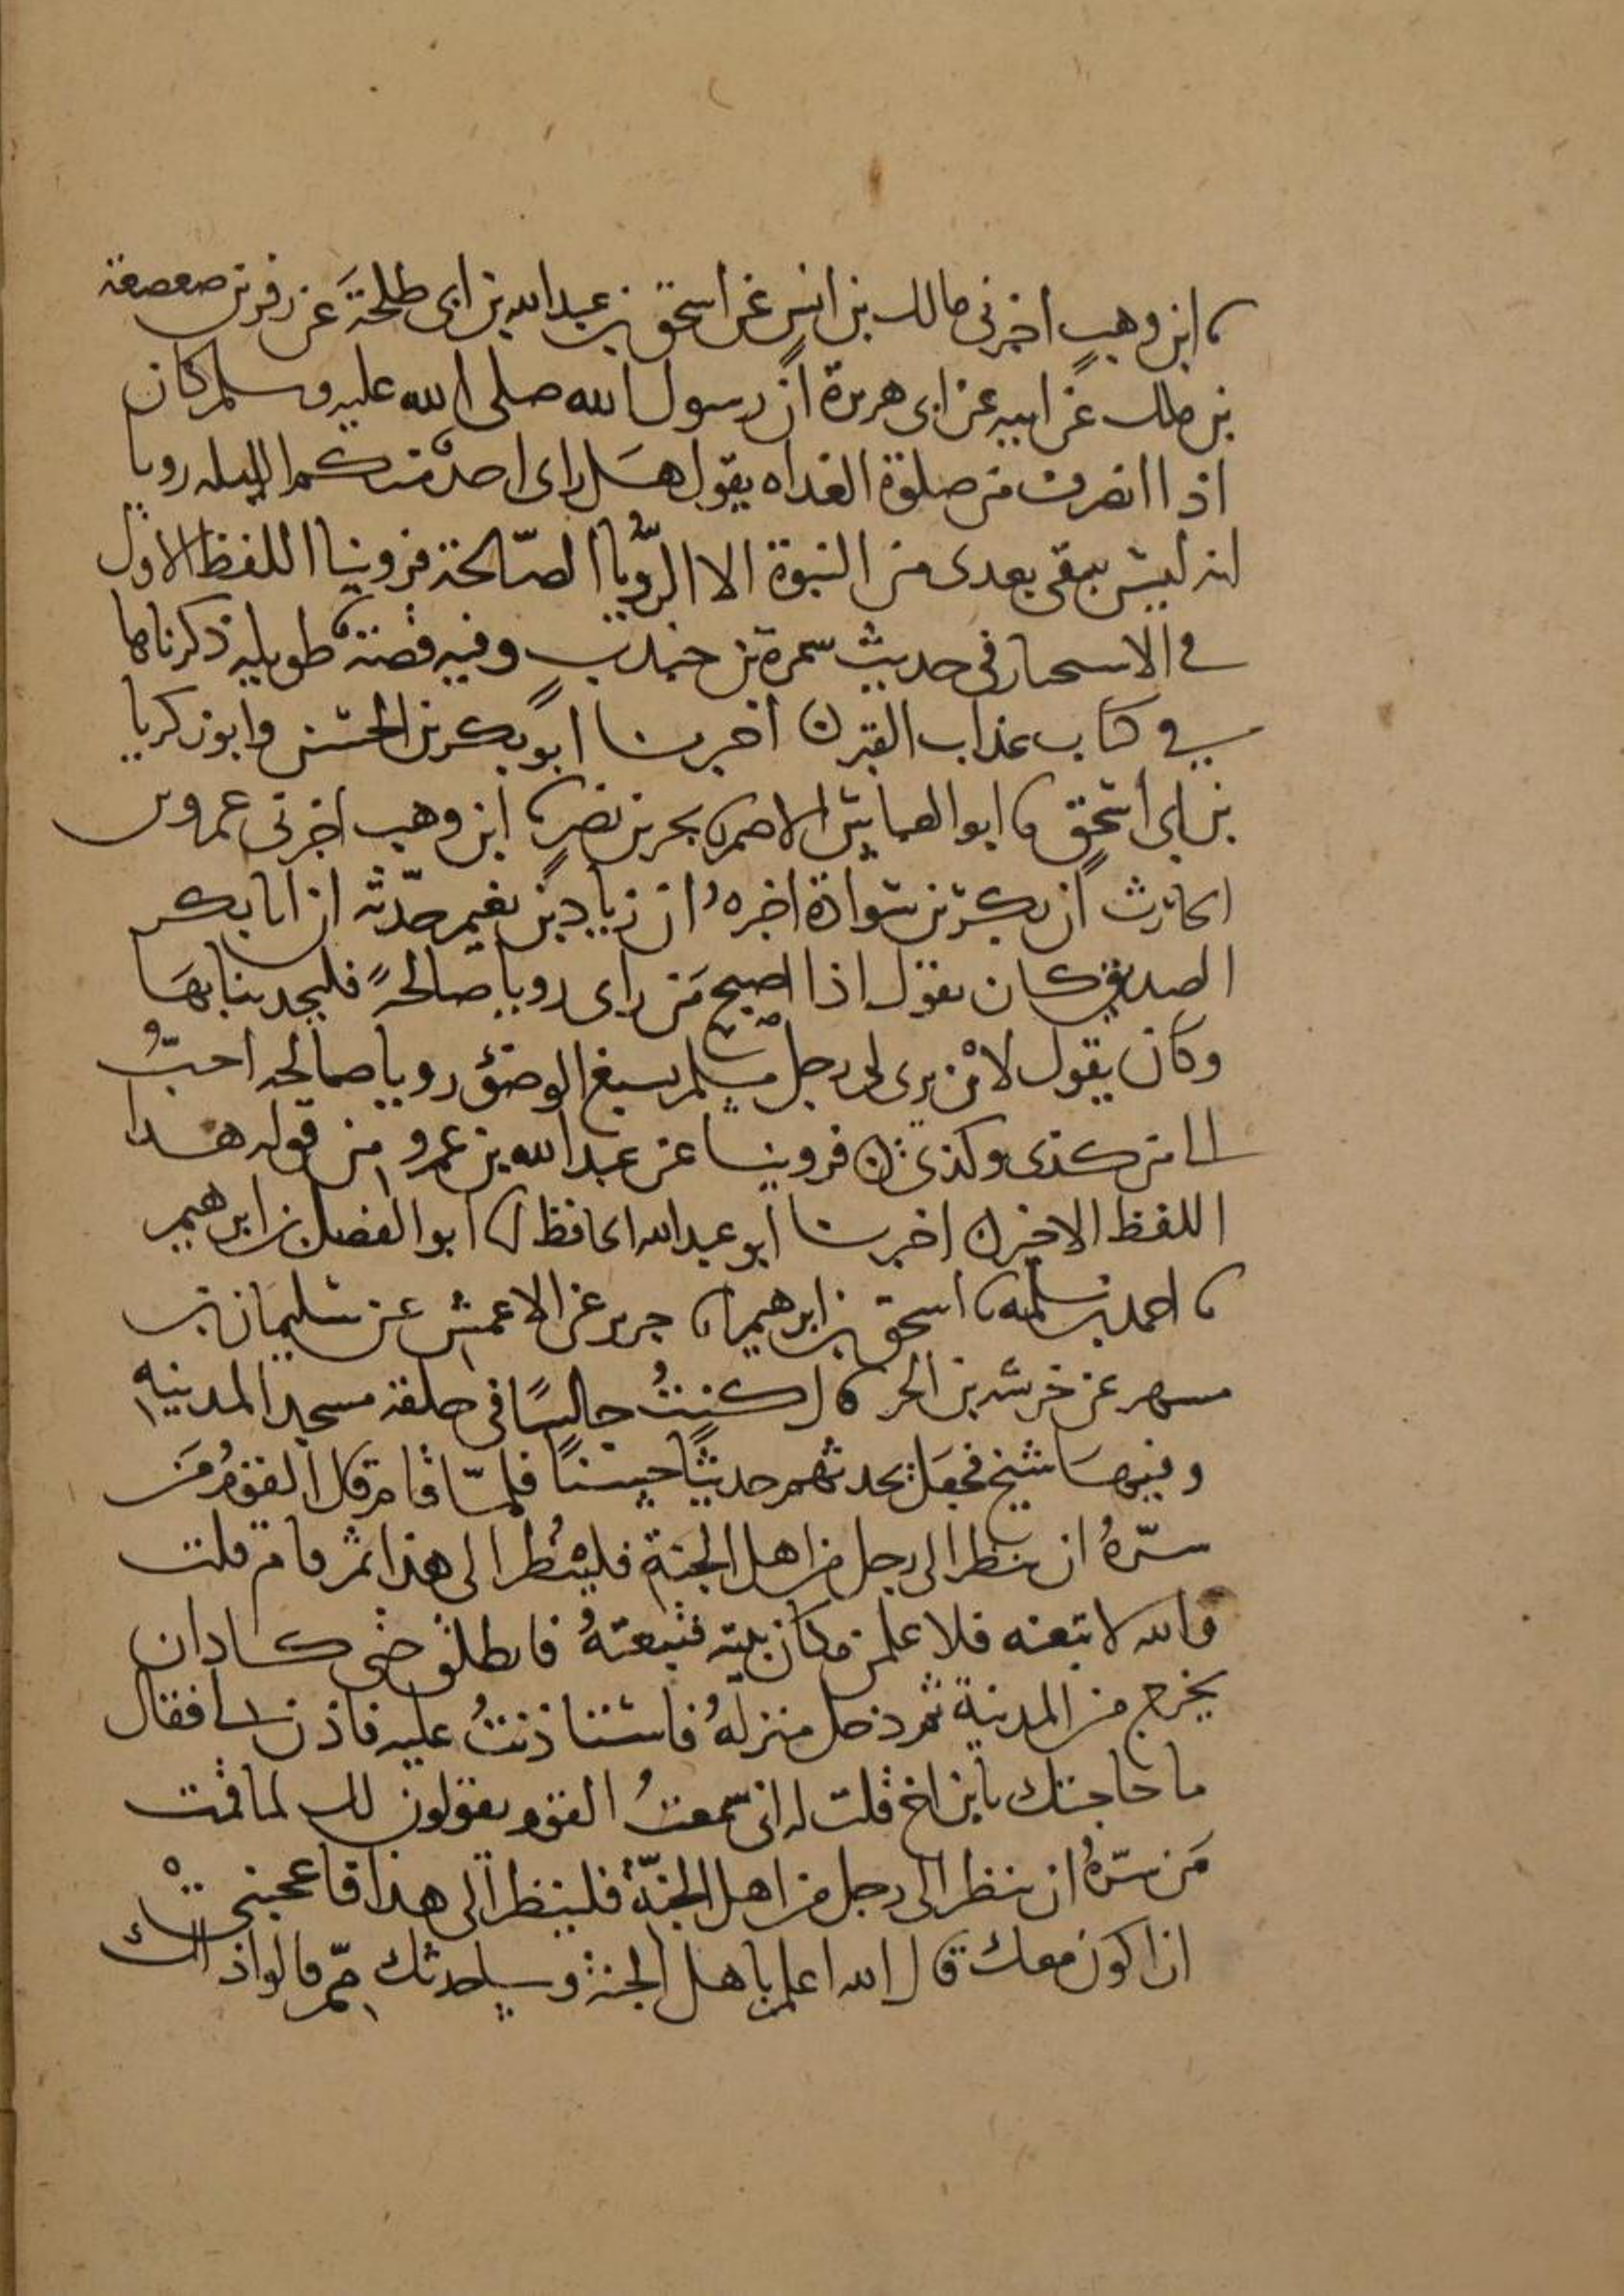 نا ابن وهب اخبرني مالك بن انس عن اسحق بن عبد الله بن ابي طلحة عن زفر بن صعصعة
بن ملك عن ابيه عن ابي هريرة أن رسول الله صلى الله عليه وسلم كان
اذا انصرف من صلوة الغداه يقول هل راى احد منكم الليله رويا
انه ليس يبقى بعدى من النبوة الا الرُّويا الصّالحة فروينا اللفظ الاول
في الاسحار في حديث سمرة بن جندب وفيه قصة طويله ذكرناها
في كتاب عذاب القبر ن اخبرنا ابو بكر بن الحسن وابو زكريا
بن ابي اسحق نا ابو العباس الاصم نا بحر بن نصر نا ابن وهب اخبرني عمرو بن
الحارث أن بكر بن سوادة اخبرهُ ان زياد بن نعيم حدّثه ان ابا بكر
الصديق كان يقول اذا اصبح مَن راى رويا صالحةً فليحدثنا بهَا
وكان يقول لأن يرى لي رجل مسلم يسبغ الوضوء رويا صالحه احبُّ
الي من كذى وكذى ن فروينا عن عبد الله بن عمرو من قوله هذا
اللفظ الاخر ن اخبرنا ابو عبد الله الحافظ نا ابو الفضل بن ابرهيم
نا احمد بن سلمه نا اسحق بن ابرهيم نا جرير عن الاعمش عن سليمان بن
مسهر عن خرشه بن الحر قال كنتُ جالسًا في حلقة مسجد المدينه
وفيهَا شيخ فجعَل يحدثهم حديثًا حسنًا فلمّا قام قال القومُ مَن
سرّهُ ان ينظر الى رجل من اهل الجنة فلينْظُر الى هذا ثم قام قلت
والله لاتبعنه فلاعلمن مكان بيته فتبعتهُ فانطلق حتى كاد ان
يخرج من المدينة ثم دخل منزلهُ فاستاذنتُ عليه فاذن لي فقال
ما حاجتك يابن اخ قلت له انى سمعتُ القوم يقولون لك لما قمت
مَن سرّهُ ان ينظر الى رجل من اهل الجنّة فلينظر الى هذا فاعجبني
ان اكون معك قال الله اعلم باهل الجنة وساحدثك ممّ قالوا ذاك